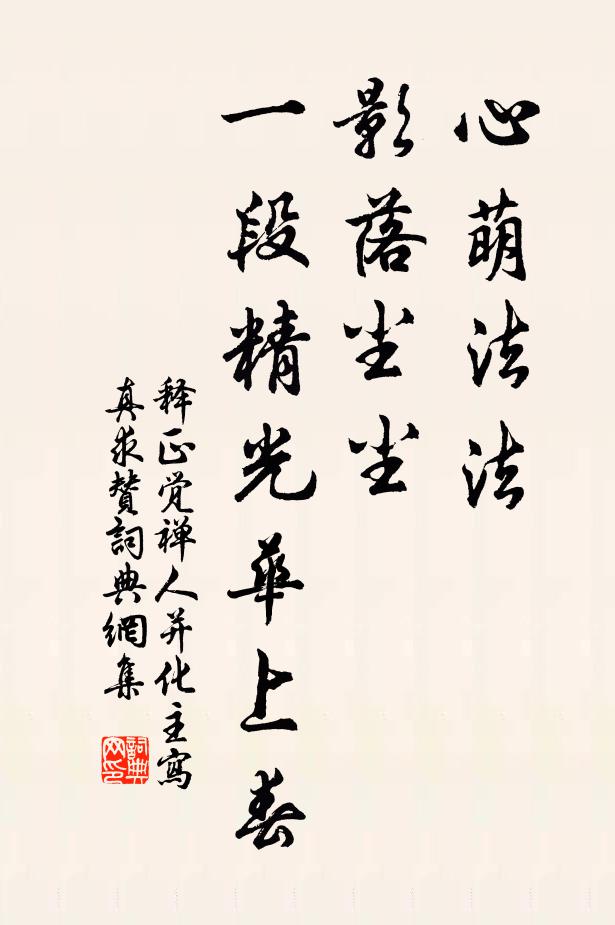 心萌法法
影落尘尘
一段精光华上春
释正觉禅人并化主写
真求赞詞典網集
詞典网印